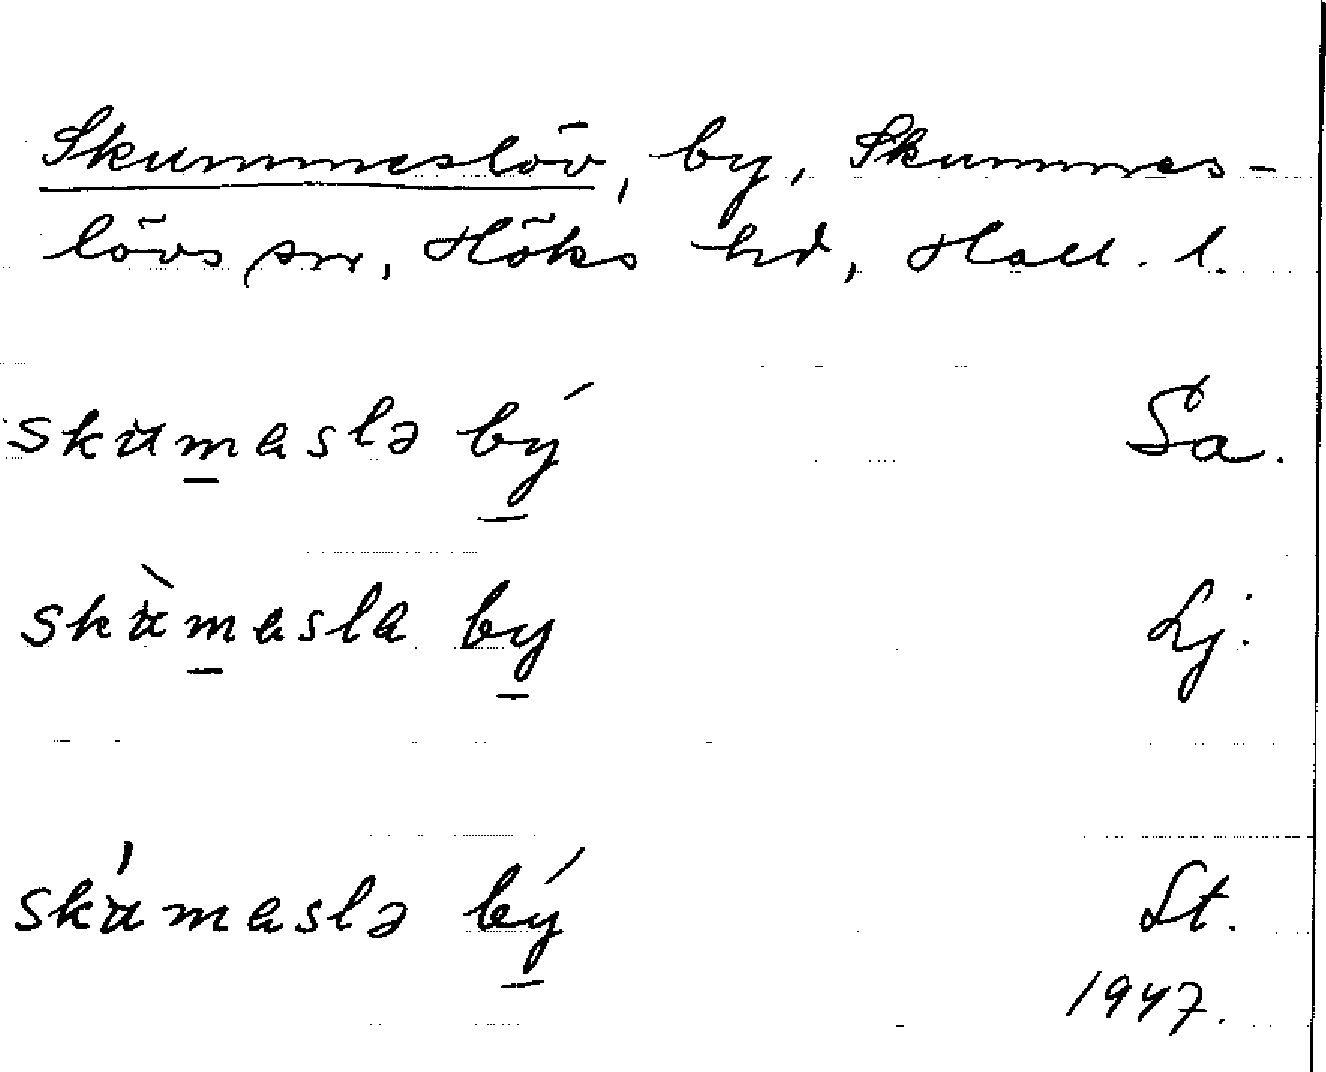 Skummeslöv, by, Skummes-
lövs sn, Höks hd, Hall. l.
skumaslə bý Sa.
skùmasla by Lj.
skúmaslə bý St.
1947.